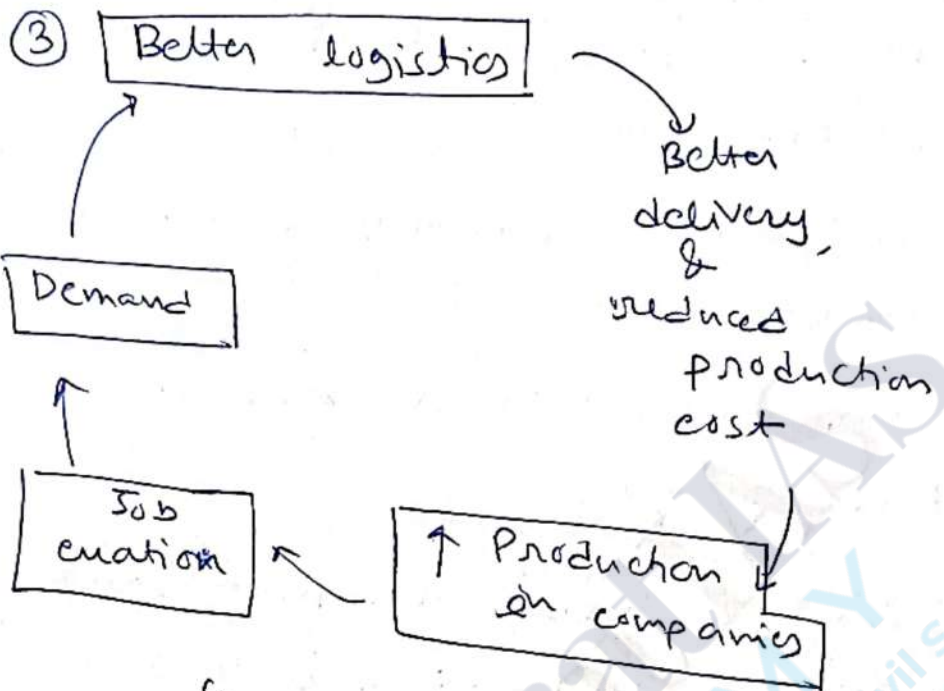 ③ Better logistics
Better
delivery,
&
reduced
production
cost
↑ Production
in companies
Job
creation
Demand